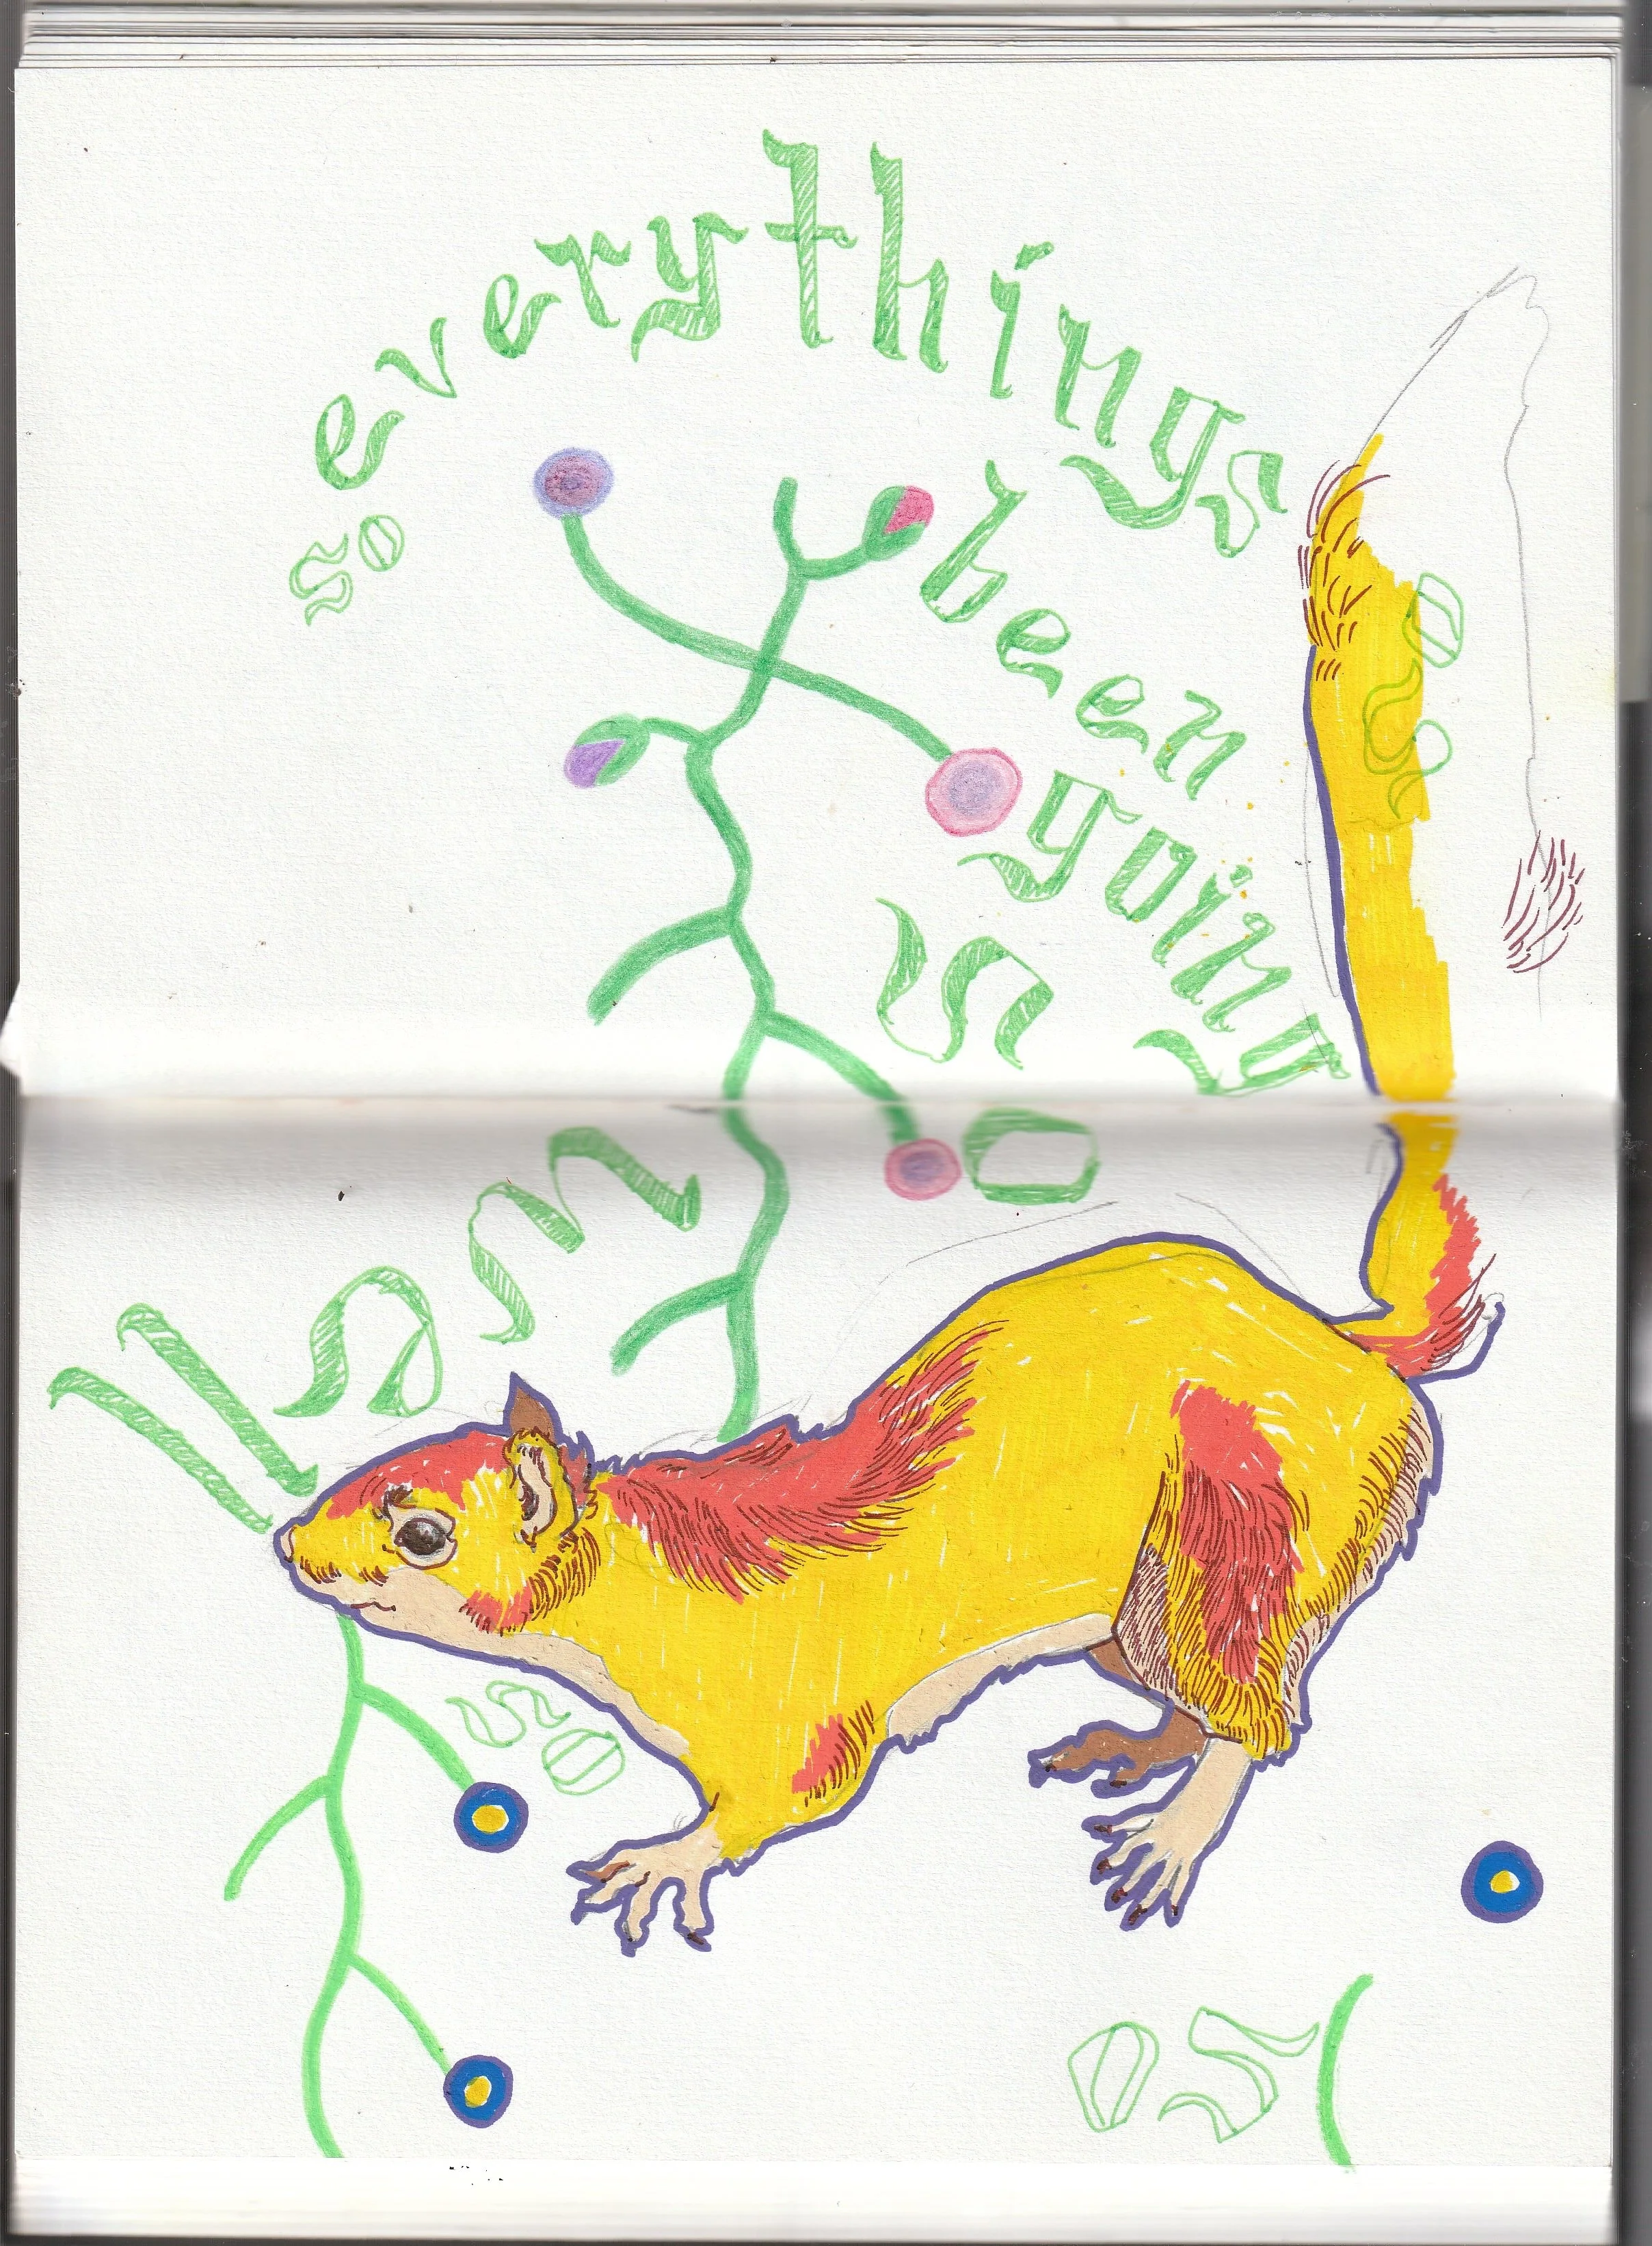 so
everythings
been
going
so
well
so
so
so